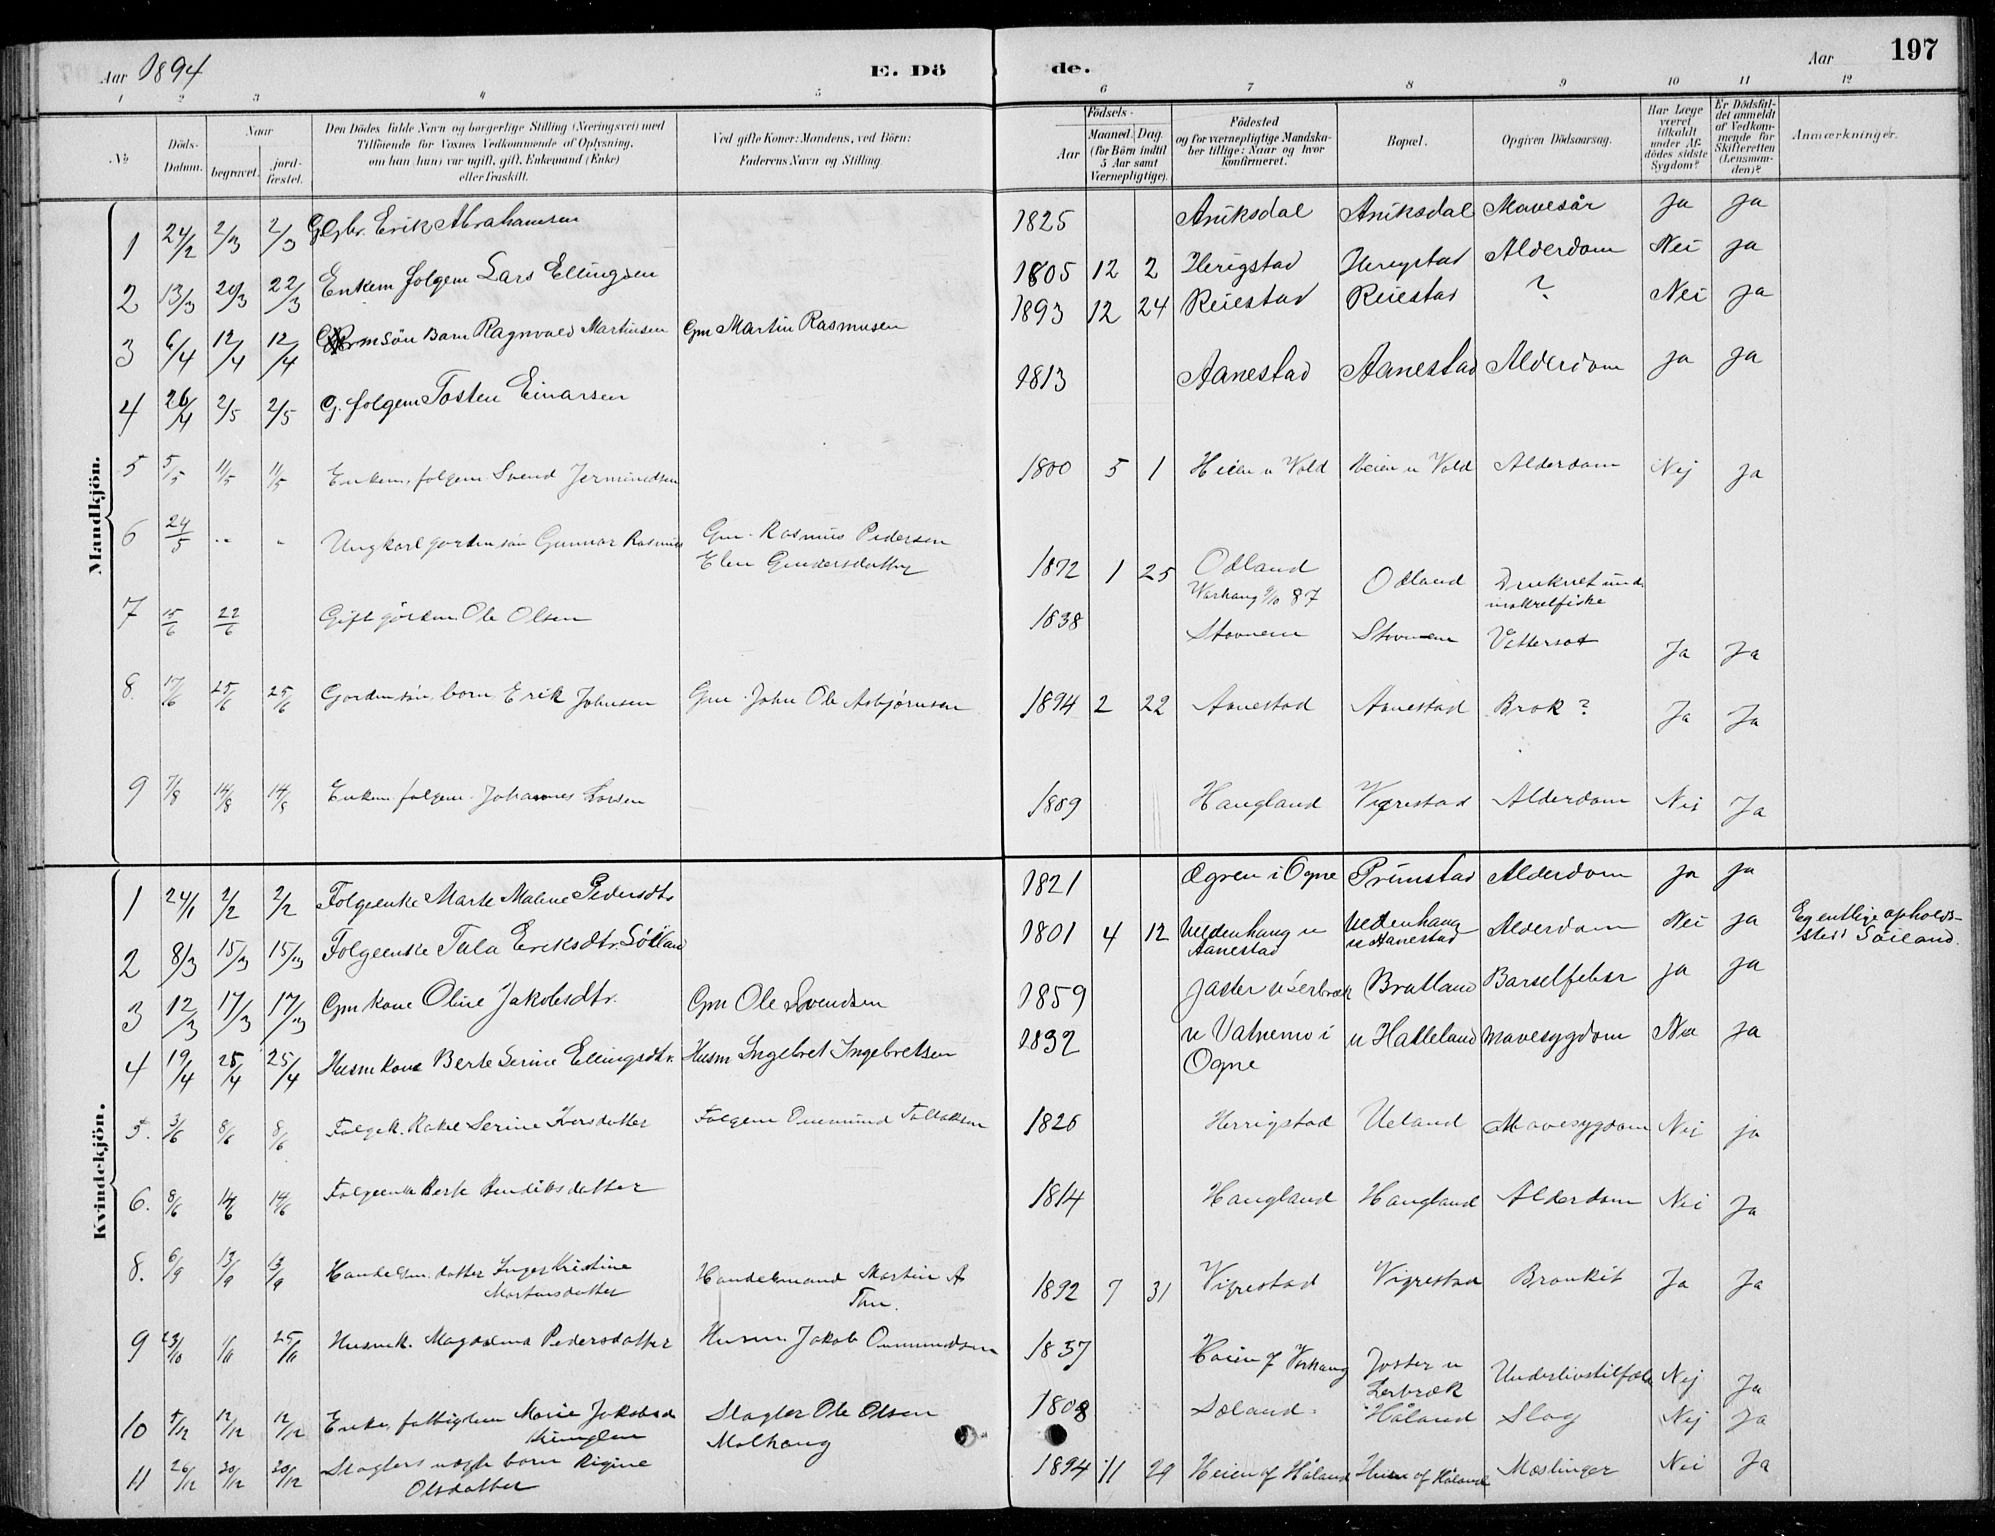 Aar 1894
E. Dö
de.
Aar
197
1 2 3 4 5 6 7 8 9 10 11 12
No
Döds-
Datum.
Naar
begravet.
jord-
fæstet.
Den Dödes fulde Navn og borgerlige Stilling (Næringsvei) med
Tilföiende for Voxnes Vedkommende af Oplysning,
om han (hun) var ugift, gift, Enkemand (Enke)
eller fraskilt.
Ved gifte Koner: Mandens, ved Börn:
Faderens Navn og Stilling.
Födsels-
Aar
Maaned. Dag.
(for Börn indtil
5 Aar samt
Værnepligtige).
Födested
og for værnepligtige Mandska-
ber tillige: Naar og hvor
konfirmeret.
Bopæl.
Opgiven Dödsaarsag.
Har Læge
været
tilkaldt
under Af-
dödes sidste
Sygdom?
Er Dödsfal-
det anmeldt
af Vedkom-
mende for
Skifteretten
(Lensman-
den)?
Anmærkninger.
Mandkjön.
1 24/2 2/3 2/3 Erik Abrahamsen 1825 Aniksdal Aniksdal Mavesår Ja Ja
2 13/3 20/3 22/3 Enkem folgem Lars Ellingsen 1805 12 2 Herigstad Herigstad Alderdom Nei Ja
3 6/4 12/4 12/4 Barn Ragnvald Martinsen Gm Martin Rasmusen 1893 12 24 Reiestad Reiestad ? Nei Ja
4 26/4 2/5 2/5 G. folgem Tosten Einarsen 1813 Aanestad Aanestad Alderdom Ja Ja
5 5/5 11/5 11/5 Enkem. folgem. Svend Jermundsen 1800 5 1 Heien u Vold Heien u Vold Alderdom Nej Ja
6 24/5 .. .. Ungkarl gordm. sön Gunnar Rasmus Gm. Rasmus Pedersen
Elen Gundersdatter 1872 1 25 Odland
Varhaug 9/10 87 Odland Druknet und.
makrelfiske
7 15/6 22/6 Gift gårdm. Ole Olsen 1838 Stovnem Stovnem Vattersot Ja Ja
8. 17/6 25/6 25/6 Gordm. sön. born Erik Johnsen Gm. John Ole Asbjørnsen 1894 2 22 Aanestad Aanestad Brok ? Ja Ja
9 7/8 14/8 14/8 Enkem. folgem. Johannes Larsen 1809 Haugland Vigrestad Alderdom Nei Ja
Kvindekjön.
1 24/1 2/2 2/2 Folgeenke Marte Malene Pedersdtr 1821 Ogne Primstad Alderdom Ja Ja
2 8/3 15/3 15/3 Folgeenke Tala Eriksdtr. 1801 4 12 Uldenhaug u
Aanestad Uldenhaug
u Aanestad Alderdom Nei Ja Egentlige opholds-
sted Söiland.
3 12/3 17/3 17/3 Gm kone Oline Jakobsdtr. Gm Ole Svendsen 1859 Jaster u Lerbræk Bratland Barselfeber Ja Ja
4 19/4 25/4 25/4 Husm kone Berte Serine Ellingsdtr. Husm Ingebret Ingebretsen 1832 u Vatnemo i
Ogne u Hatleland Mavesygdom Nei Ja
5. 3/6 8/6 8/6 Folgek. Rakel Serine Iversdatter Folgem Omund 1826 Herrigstad Ueland Mavesygdom Nei ja
6. 8/6 14/6 14/6 Folgeenke Berte Bendiksdatter 1814 Haugland Haugland Alderdom Nei Ja
8. 6/9 13/9 13/9 Handelsm. datter Inger Kristine
Martinsdatter Handelsmand Martin A
Thu. 1892 7 31 Vigrestad Vigrestad Bronkit Ja Ja
9 23/10 1/11 25/11 Husmk. Magdalena Pedersdatter Husm. Jakob Ommundsen 1837 Heien af Varhaug Jaster u
Lerbræk Underlivstilfælde Nej Ja
10 5/12 12/12 12/12 Enke, fattiglem Marie Jakobsd Slagter Ole Olsen
Molhaug 1808 Soland. Håland Slag Nej Ja
11 26/12 30/12 30/12 Slagters uægte born Rigine
Olsdatter 1894 11 29 Heien af Håland Heien af Håland Mæslinger Nei Ja